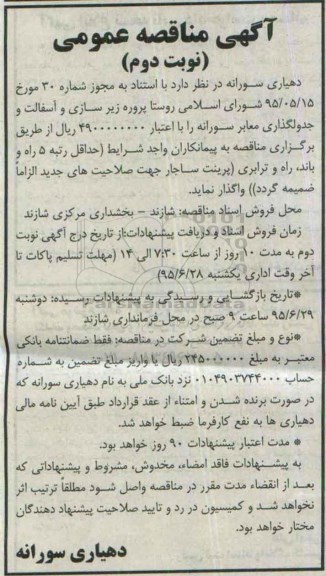 آگهی مناقصه عمومی
(نوبت دوم)
دهیاری سورانه در نظر دارد با استناد به مجوز شماره ۳۰ مورخ
۹۵/۰۵/۱۵ شورای اسلامی روستا پروره زیر سازی و آسفالت و
جدولگذاری معابر سورانه را با اعتبار ۴۹۰۰۰۰۰۰۰۰ ریال از طریق
برگزاری مناقصه به پیمانکاران واجد شرایط (حداقل رتبه ۵ راه و
باند، راه و ترابری (پرینت ساجار جهت صلاحیت های جدید الزاماً
ضمیمه گردد)) واگذار نماید.
محل فروش اسناد مناقصه: شازند – بخشداری مرکزی شازند
زمان فروش اسناد و دریافت پیشنهادات:از تاریخ درج آگهی نوبت
دوم به مدت ۱۰ روز از ساعت ۷:۳۰ الی ۱۴ (مهلت تسلیم پاکات تا
آخر وقت اداری یکشنبه ۹۵/۶/۲۸)
*تاریخ بازگشایی و رسیدگی به پیشنهادات رسیده: دوشنبه
۹۵/۶/۲۹ ساعت ۹ صبح در محل فرمانداری شازند
*نوع و مبلغ تضمین شرکت در مناقصه: فقط ضمانتنامه بانکی
معتبر به مبلغ ۲۴۵۰۰۰۰۰۰ ریال یا واریز مبلغ تضمین به شماره
حساب ۰۱۰۴۹۰۳۷۴۴۰۰۰ نزد بانک ملی به نام دهیاری سورانه که
در صورت برنده شدن و امتناع از عقد قرارداد طبق آیین نامه مالی
دهیاری ها به نفع کارفرما ضبط خواهد شد.
* مدت اعتبار پیشنهادات ۹۰ روز خواهد بود.
به پیشنهادات فاقد امضاء، مخدوش، مشروط و پیشنهاداتی که
بعد از انقضاء مدت مقرر در مناقصه واصل شود مطلقاً ترتیب اثر
نخواهد شد و کمیسیون در رد و تایید صلاحیت پیشنهاد دهندگان
مختار خواهد بود.
دهیاری سورانه